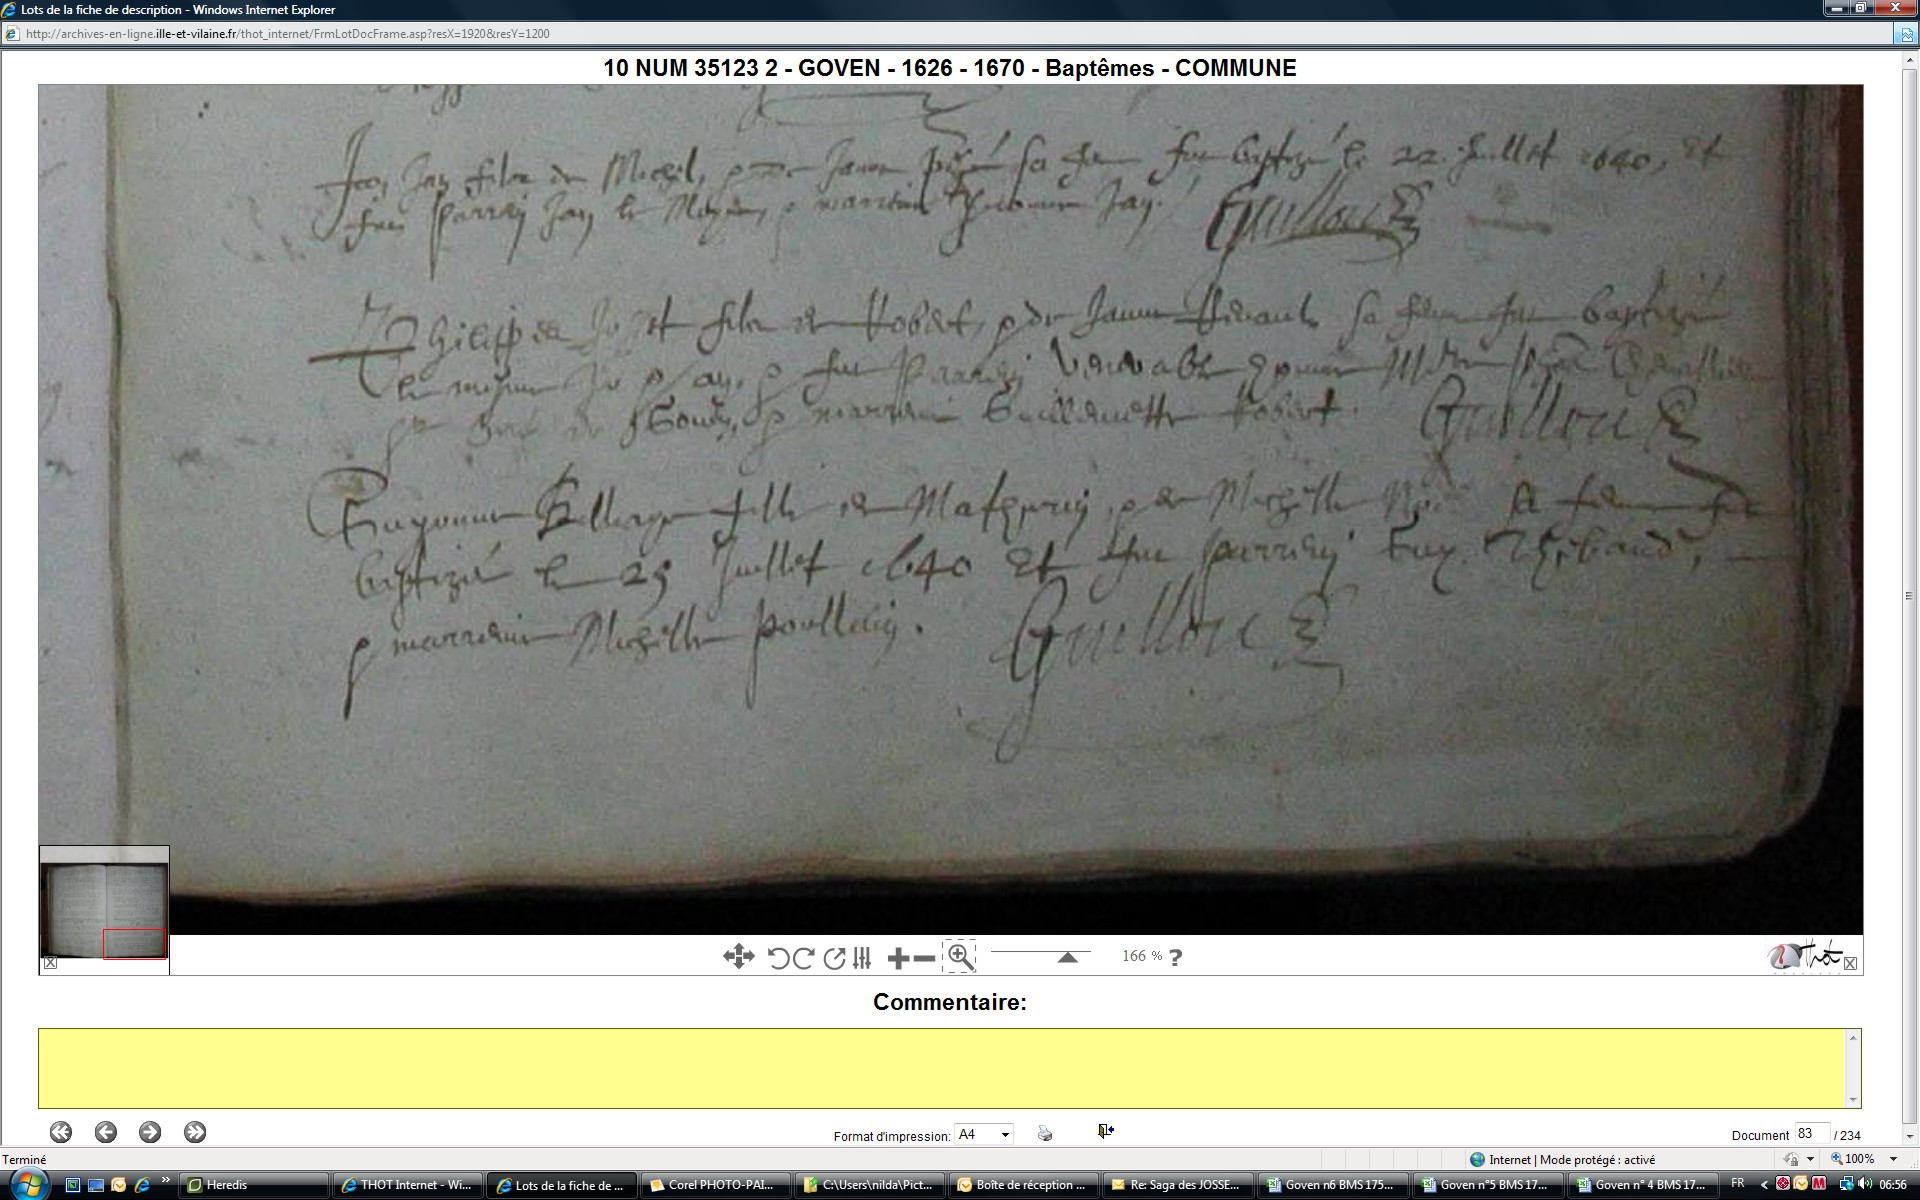 Lots de la fiche de description - Windows Internet Explorer
http://archives-en-ligne.ille-et-vilaine.fr/thot_internet/FrmLotDocFrame.asp?resX=1920&resY=1200
10 NUM 35123 2 - GOVEN - 1626 - 1670 - Baptêmes - COMMUNE
Jan filz de Michel, sa fem fut baptizé le 22 Juillet 1640, Et
fut parrein Jan le Moyne, Jan. Guillou
filz de Robert, & de Janne sa feme fut baptizé
le mesme jo & an, & fut Parrein Venerable
de Goven, & marreine Guillemette Robert. Guillou
Guyonne fille de Mathurin, & de Michelle sa feme fut
baptizée le 25 Juillet 1640 Et fut parrein Guy Thebaud,
& marreine Michelle Poullain. Guillou
166 % ?
Thot
Commentaire:
Format d'impression: A4
Document 83 / 234
Terminé
Internet | Mode protégé : activé
100%
Heredis
THOT Internet - Wi...
Lots de la fiche de ...
Corel PHOTO-PAI...
C:\Users\nilda\Pict...
Boîte de réception ...
Re: Saga des JOSSE...
Goven n6 BMS 175...
Goven n°5 BMS 17...
Goven n° 4 BMS 17...
FR
06:56